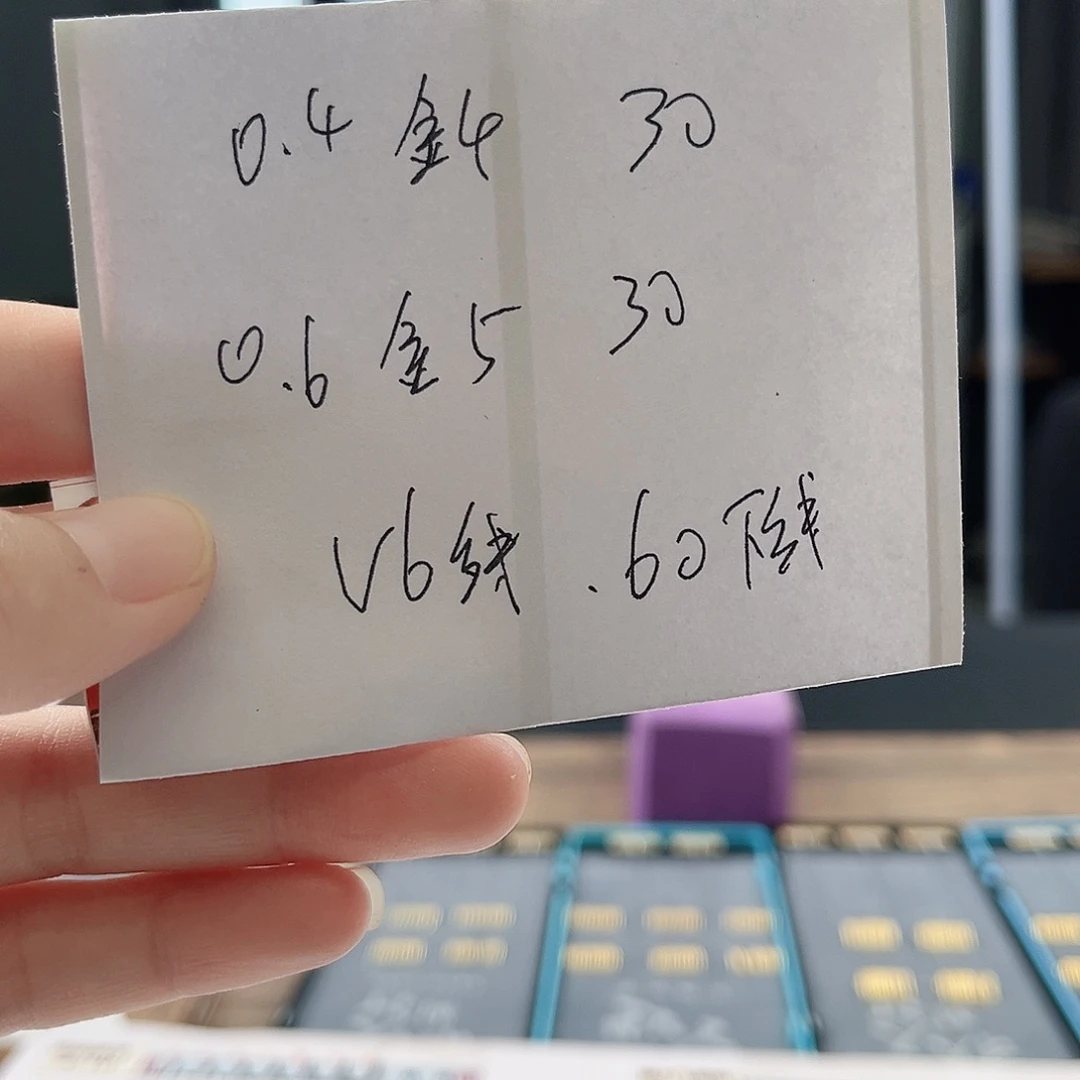 0.4 金4 30
0.6 金5 30
V6线 .60下线